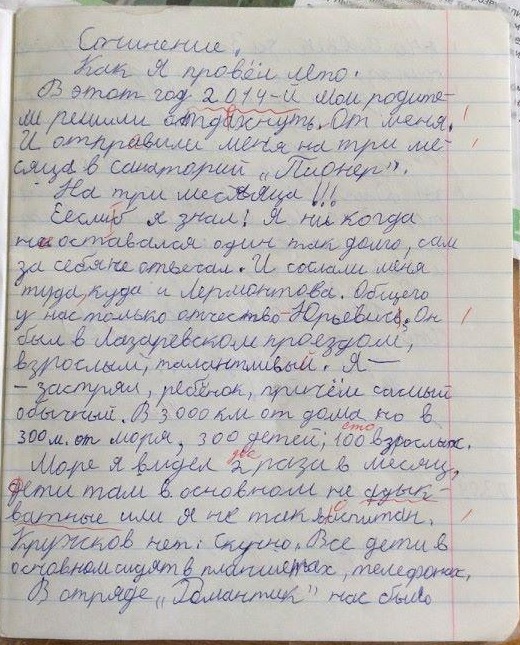 Сочинение.
Как я провёл лето.
В этот год 2014-й мои родите-
ли решили отдохнуть. От меня.
И отправили меня на три ме-
сяца в санаторий „Пионер".
На три месяца!!!
Еслиб я знал! Я ни когда
не оставался один так долго, сам
за себя не отвечал. И сослали меня
туда, куда и Лермонтова. Общего
у нас только отчество - Юрьевич. Он
был в Лазаревском проездом,
взрослым, талантливый. Я —
- застрял, ребёнок, причём самый
обычный. В 3000 км от дома но в
300 м. от моря, 300 детей, 100 взрослых.
сто
Море я видел 2 раза в месяц,
два
дети там в основном не адык-
ватные или я не так воспитан.
Кружков нет. Скучно. Все дети в
основном сидят в планшетах, телефонах.
В отряде „Романтик" нас было